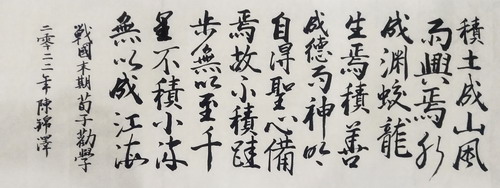 積土成山風
雨興焉水
成淵蛟龍
生焉積善
成德而神明
自得聖心備
焉故不積跬
步無以至千
里不積小流
無以成江海
戰國末期荀子勸學
二零二二年陳錦澤